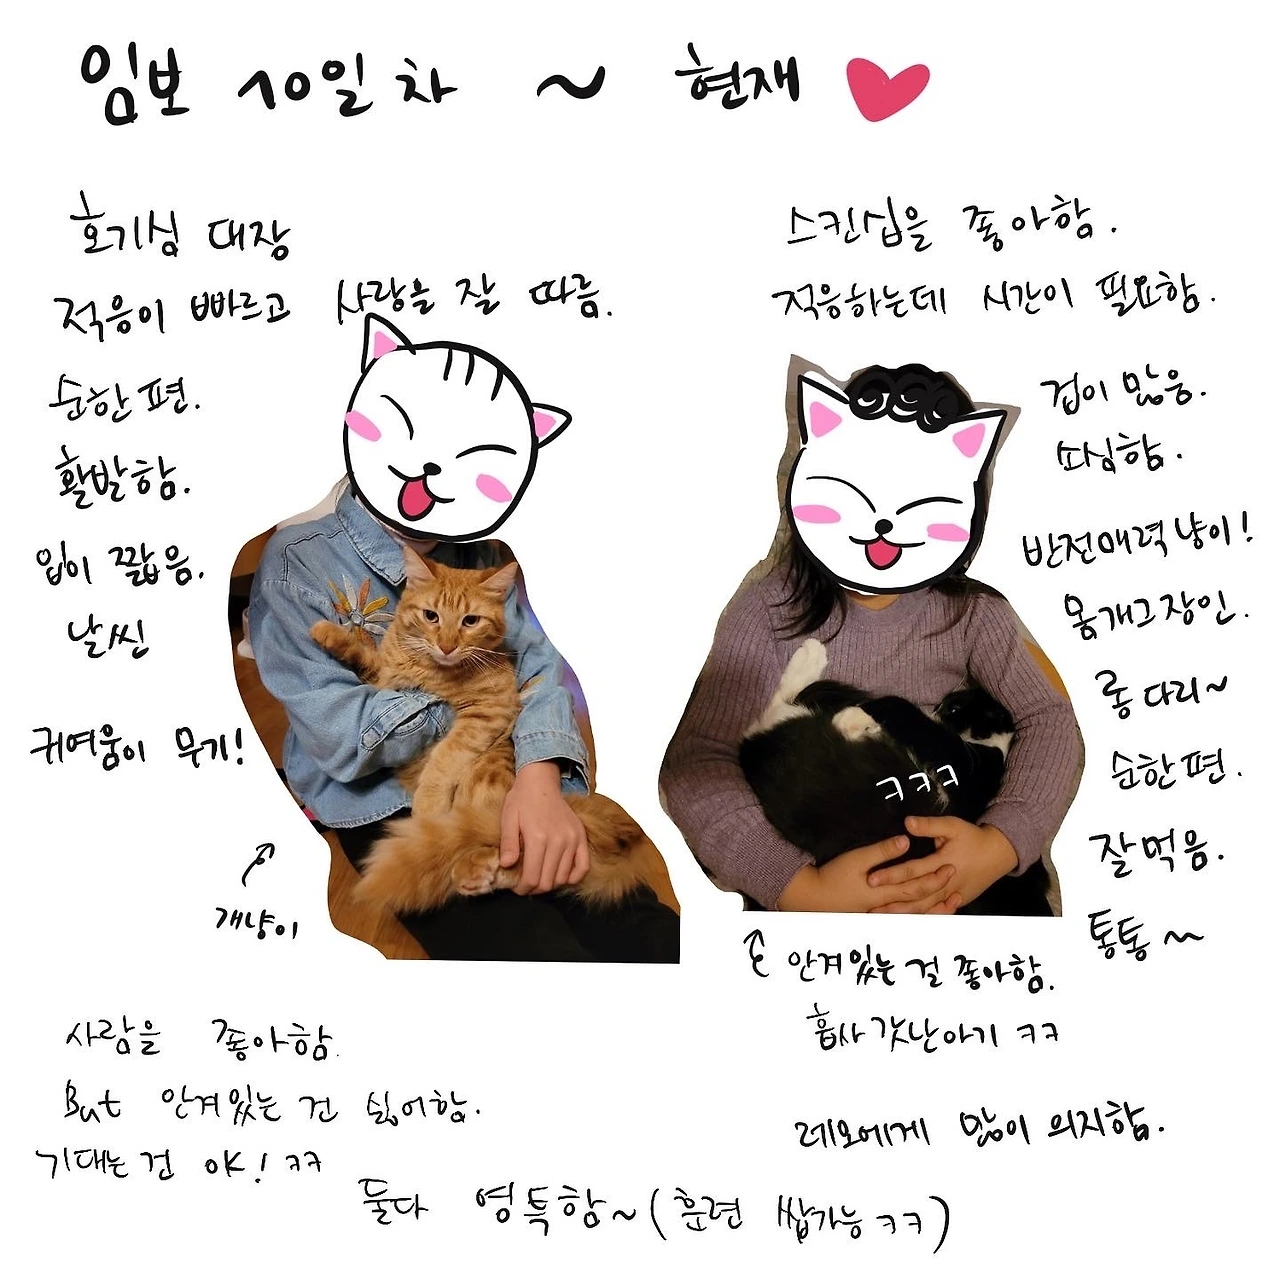 임보 10일차 ~ 현재
호기심 대장
적응이 빠르고 사랑을 잘 따름.
순한편.
활발함.
입이 짧음.
날씬
귀여움이 무기!
개냥이
사람을 좋아함.
But 안겨있는 건 싫어함.
기대는건 OK! ㅋㅋ
스킨십을 좋아함.
적응하는데 시간이 필요함.
겁이 많음.
소심함.
반전매력냥이!
롱다리~
순한편.
잘먹음.
통통~
ㅋㅋㅋ
안겨있는 걸 좋아함.
흡사 갓난아기 ㅋㅋ
레오에게 많이 의지함.
둘다 영특함~(훈련 쌉가능 ㅋㅋ)